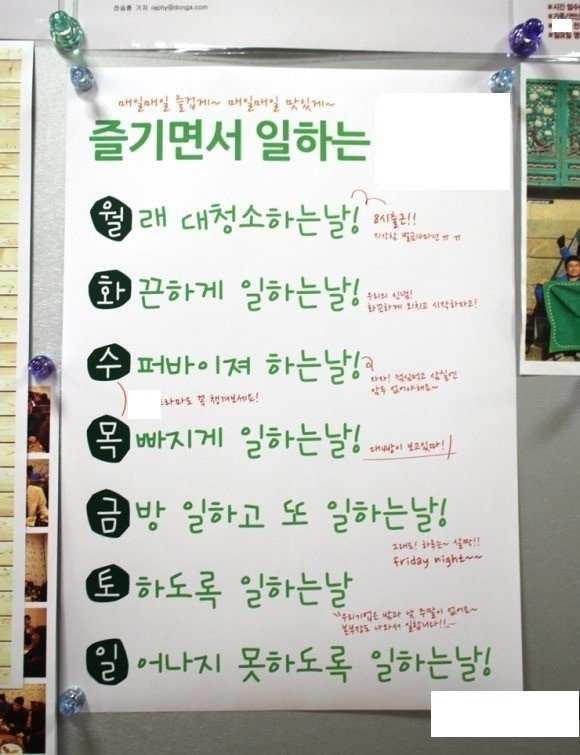 전승훈 기자 raphy@donga.com
매일매일 즐겁게~ 매일매일 맛있게~
즐기면서 일하는
월래 대청소하는날!
8시출근!!
화끈하게 일하는날!
우리의 신념!
화끈하게 외치고 시작하자고!
수퍼바이져 하는날!
자자! 점심먹고 삼실엔
암두 없어야해요~
드라마도 꼭 챙겨보세요!
목빠지게 일하는날!
대빵이 보고있따!
금방 일하고 또 일하는날!
그래도! 하루는~ 살짝!!
friday night~~
토하도록 일하는날
우리기업은 밤과 낮 주말이 없어요~
본부장도 나와서 일합니다!!~
일어나지 못하도록 일하는날!